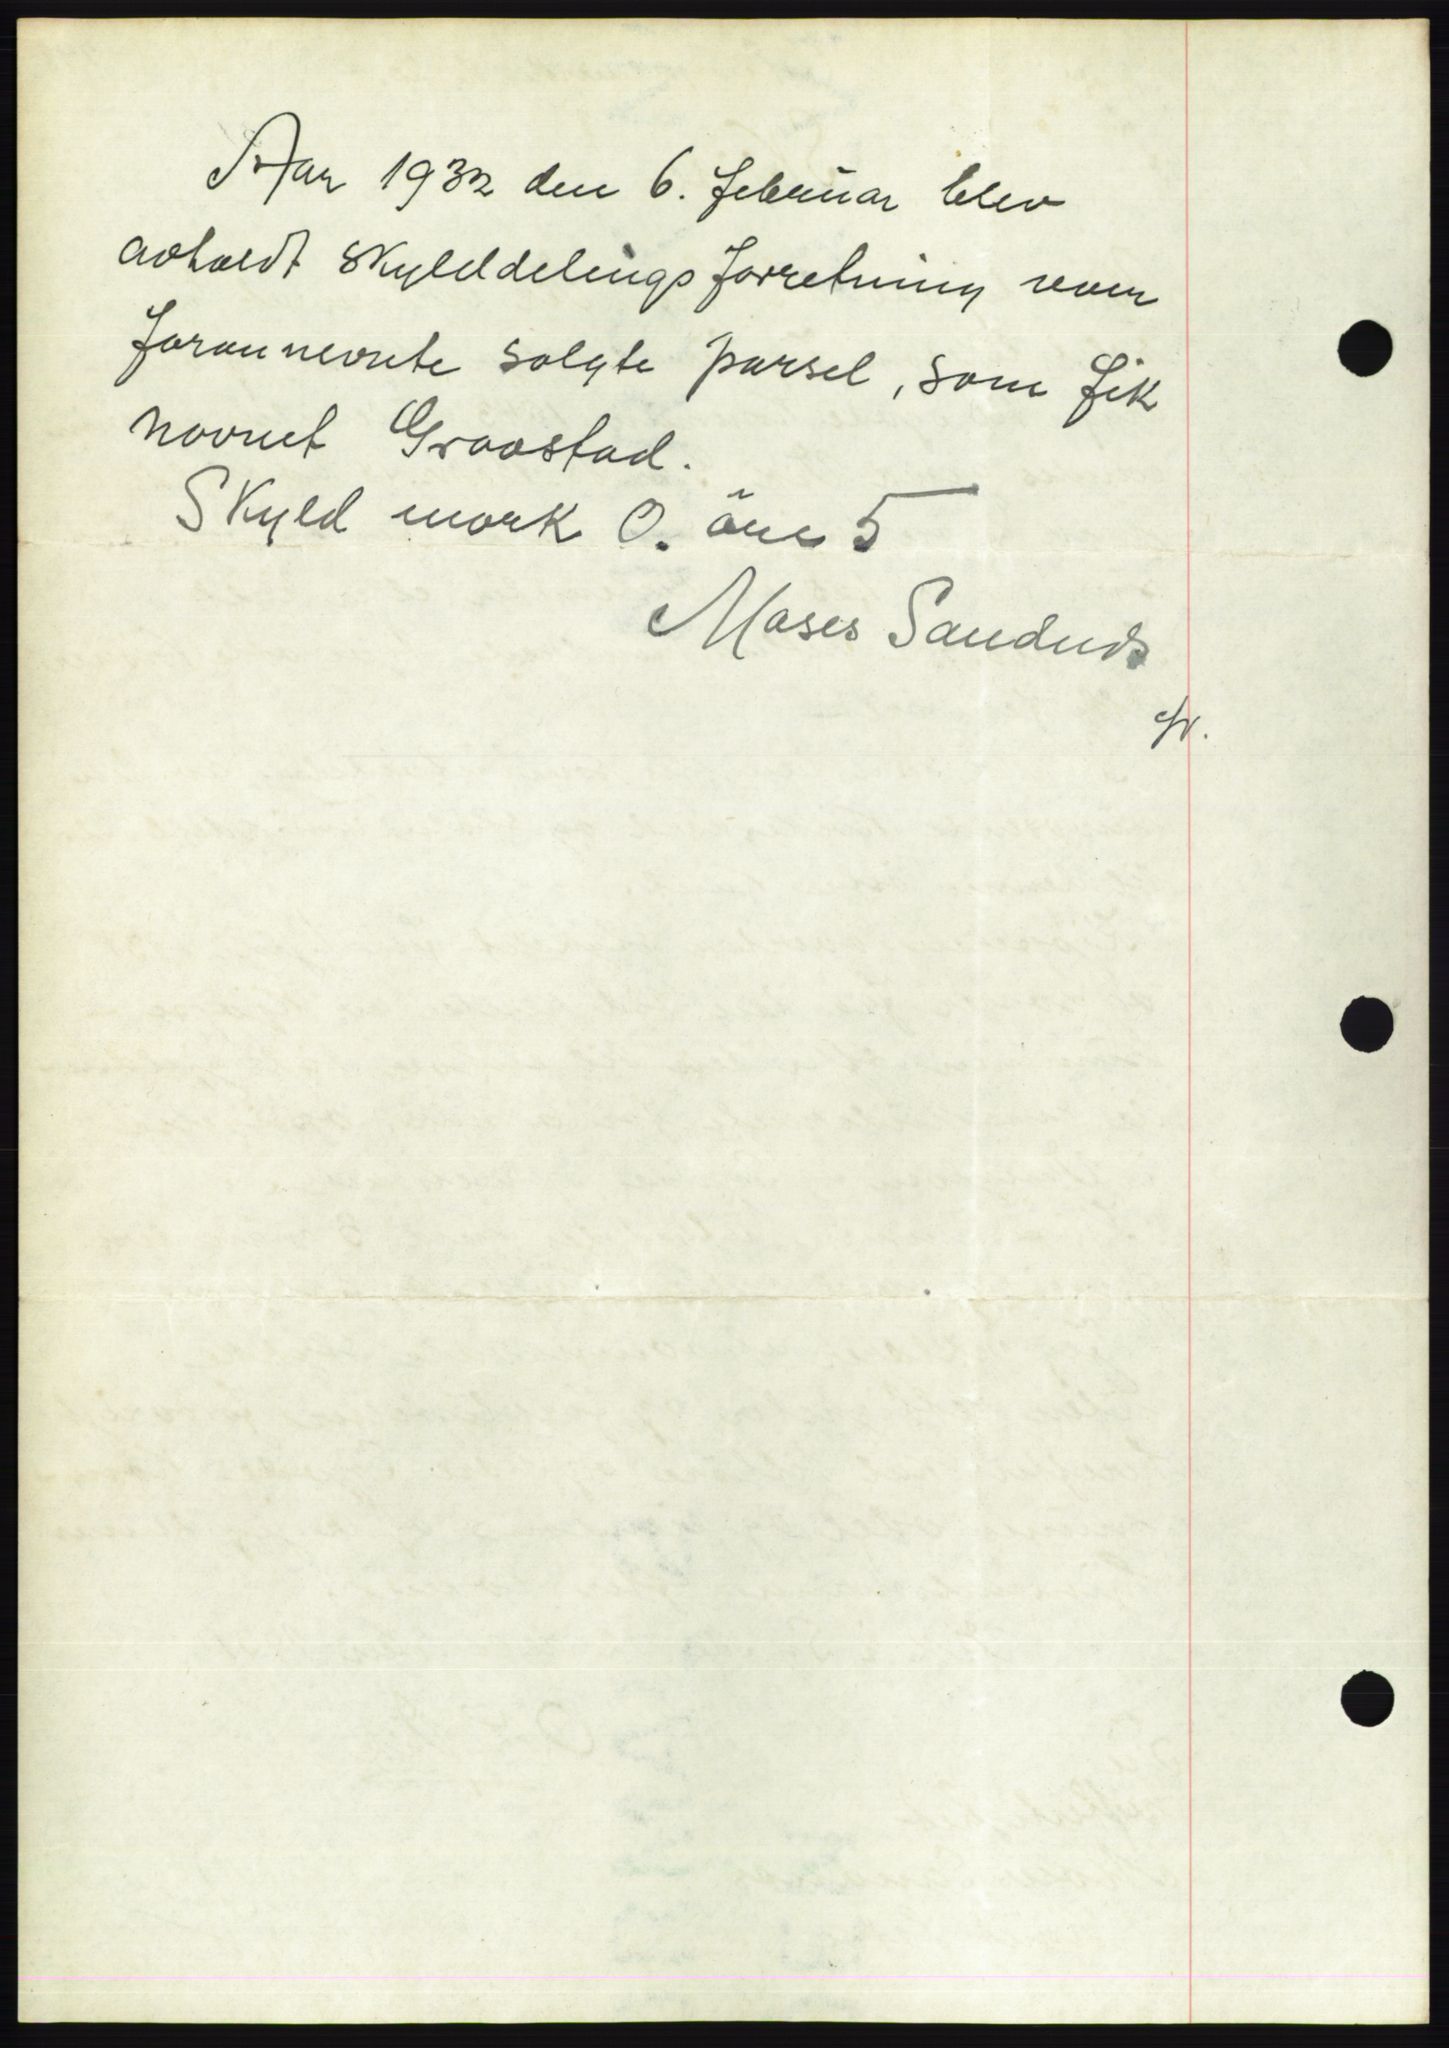 Aar 1932 den 6. februar blev
avholdt skylddelings forretning over
forannevnte solgte parsel, som fik
navnet Graastad.
Skyld mark 0. öre 5
Moses Sandnes